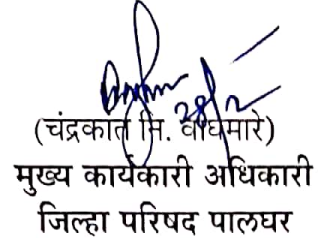 28/2
(चंद्रकांत नि. वाघमारे)
मुख्य कार्यकारी अधिकारी
जिल्हा परिषद पालघर